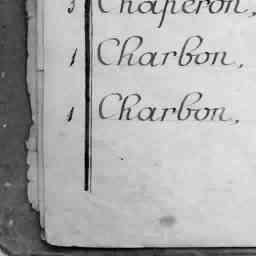 3 Chaperon,
1 Charbon,
1 Charbon,